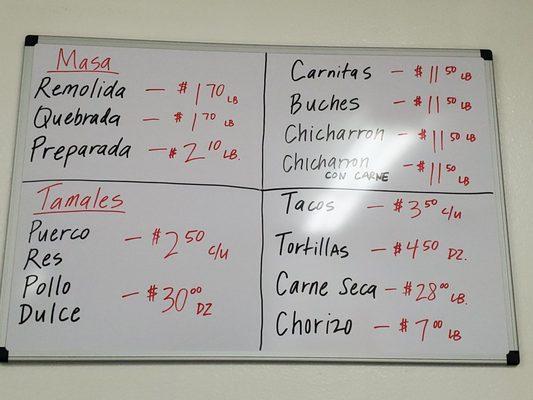 Masa
Remolida — $1 70 LB
Quebrada — $1 70 LB
Preparada — $2 10 LB.
Tamales
Puerco
Res
— $2 50 c/u
Pollo
Dulce
— $30 00 DZ
Carnitas — $11 50 LB
Buches — $11 50 LB
Chicharron — $11 50 LB
Chicharron — $11 50 LB
CON CARNE
Tacos — $3 50 c/u
Tortillas — $4 50 DZ.
Carne Seca — $28 00 LB.
Chorizo — $7 00 LB